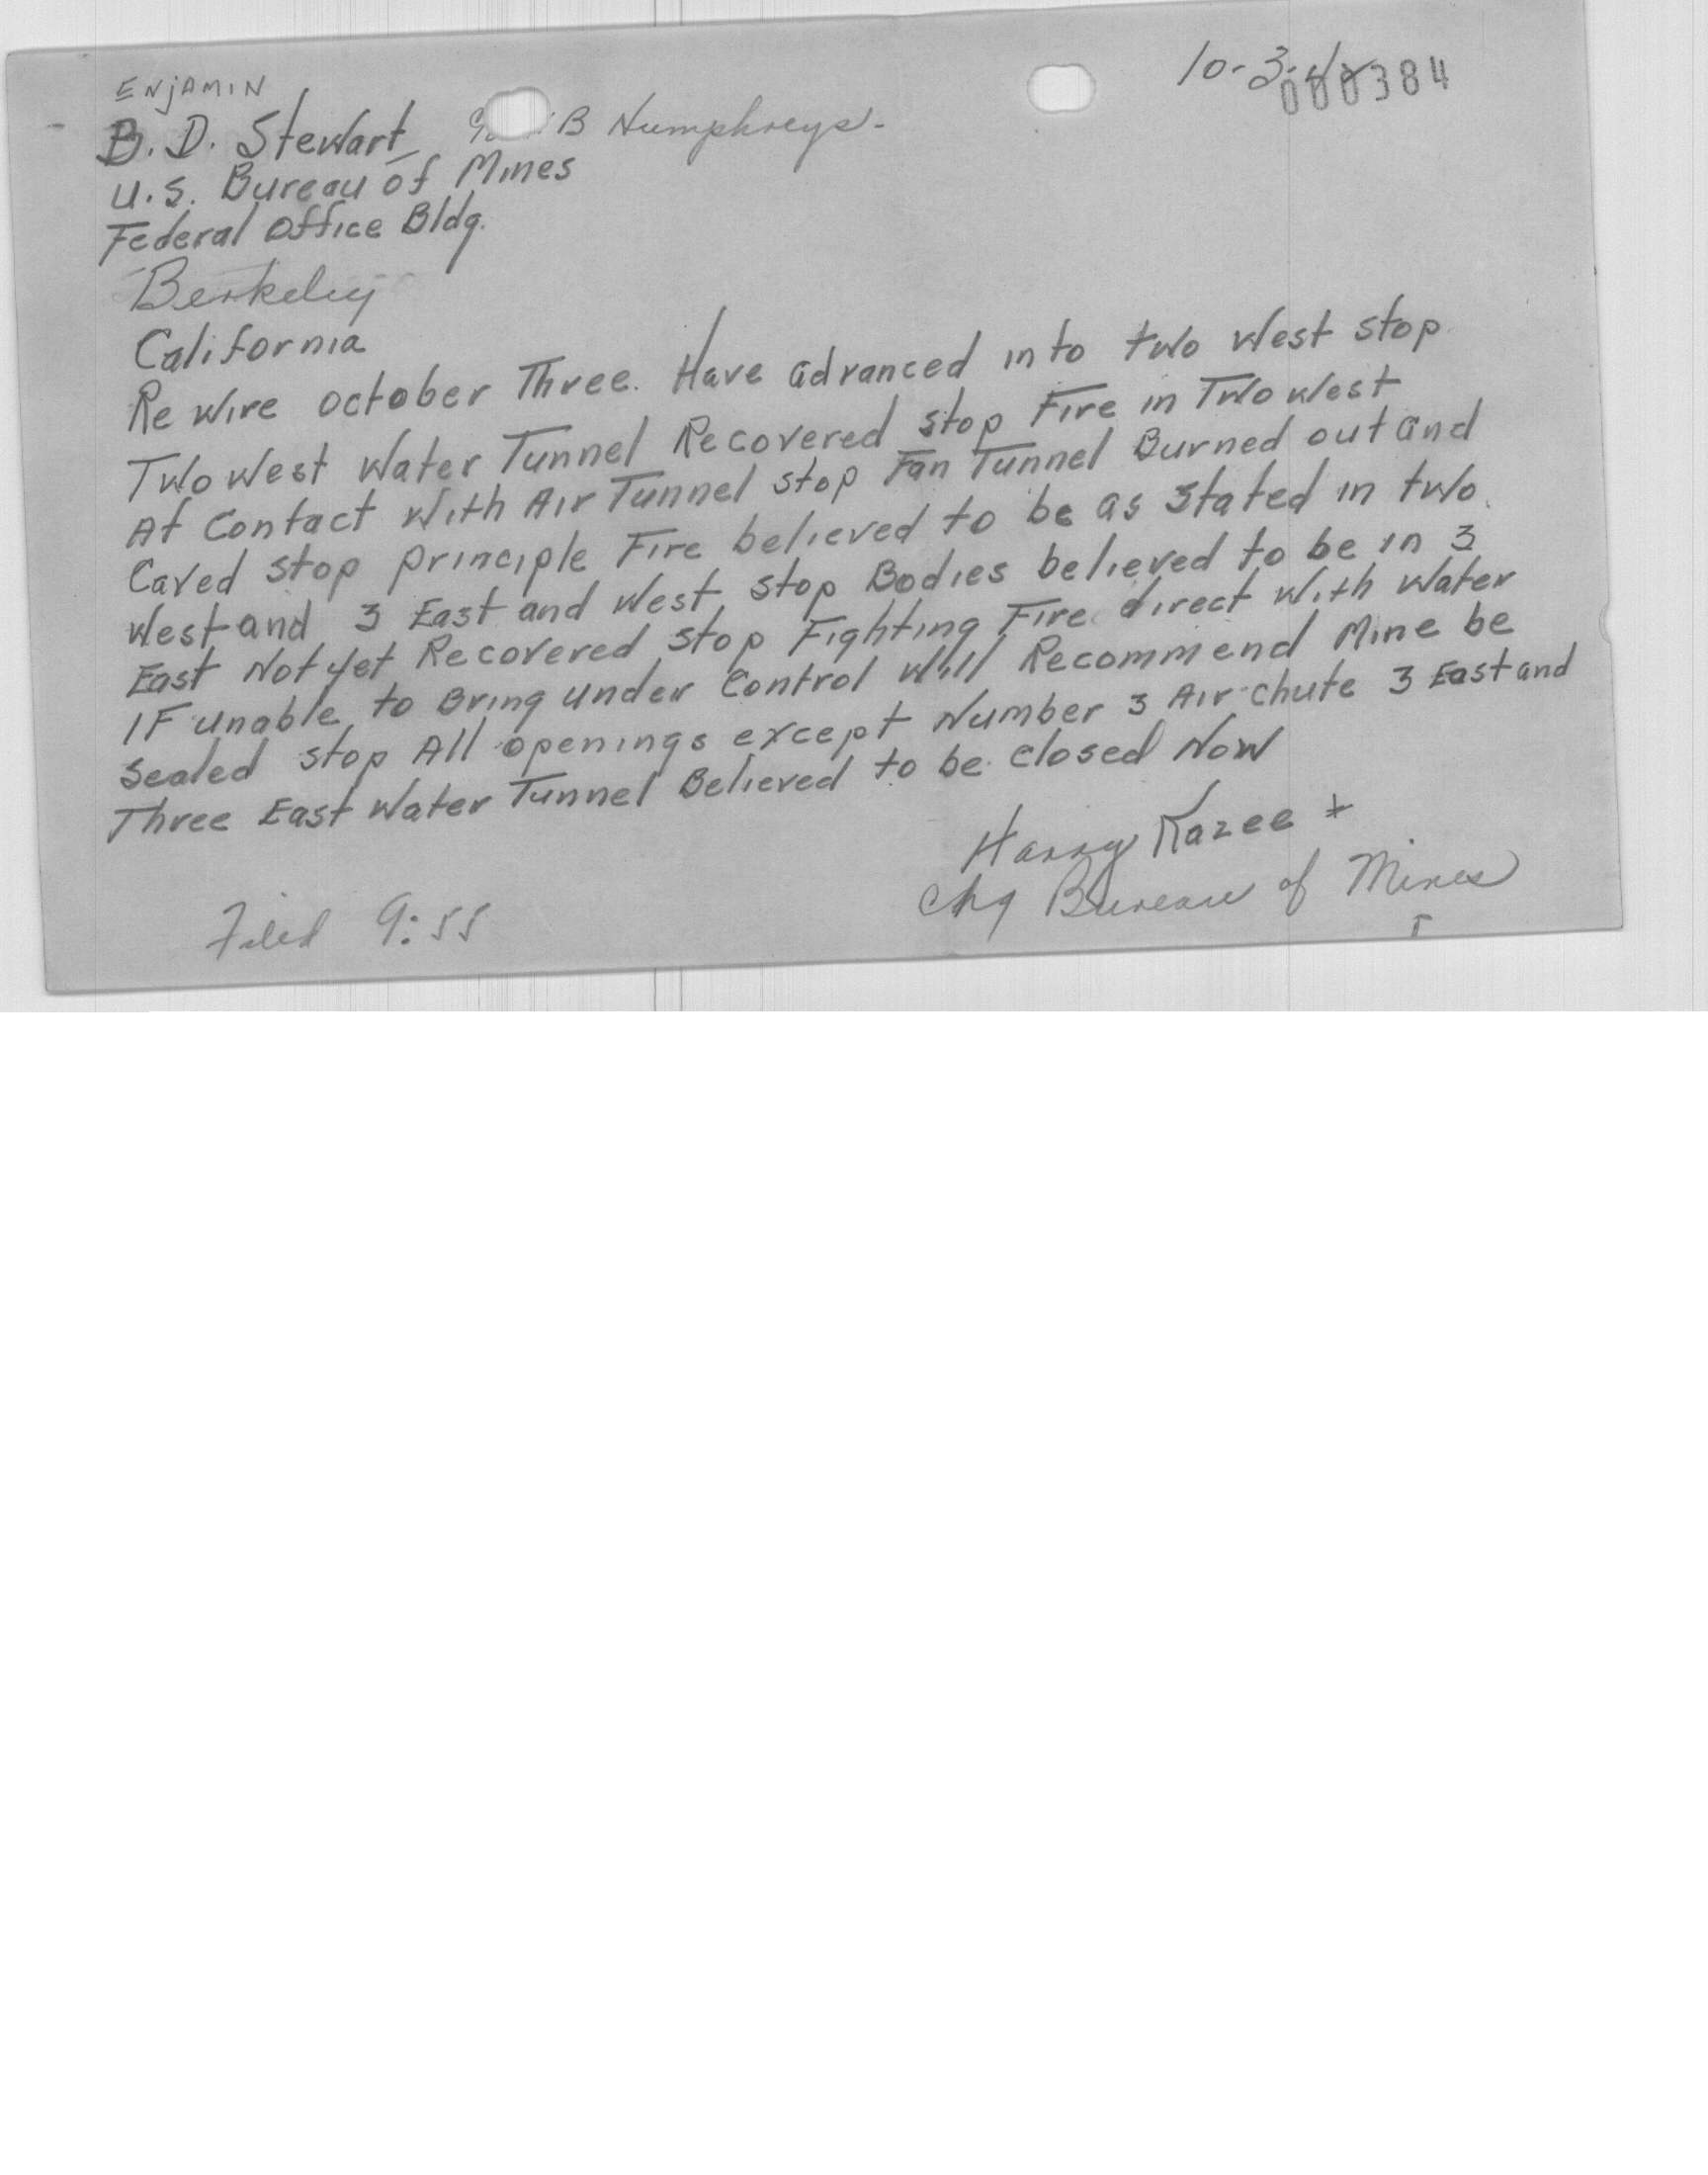 10-3-
000384
ENJAMIN
B. D. Stewart B Humphreys-
U.S. Bureau of Mines
Federal Office Bldg.
Berkeley
California
Re Wire October Three. Have advanced into two West stop
Two West Water Tunnel Recovered stop Fire in Two West
At Contact With Air Tunnel stop Fan Tunnel Burned out and
Caved stop principle Fire believed to be as stated in two
West and 3 East and West stop Bodies believed to be in 3
East Not yet Recovered stop Fighting Fire direct With Water
IF unable to Bring under Control Will Recommend Mine be
sealed stop All openings except Number 3 Air Chute 3 East and
Three East Water Tunnel Believed to be closed Now
Harry Kazee +
Chg Bureau of Mines
Filed 9:55